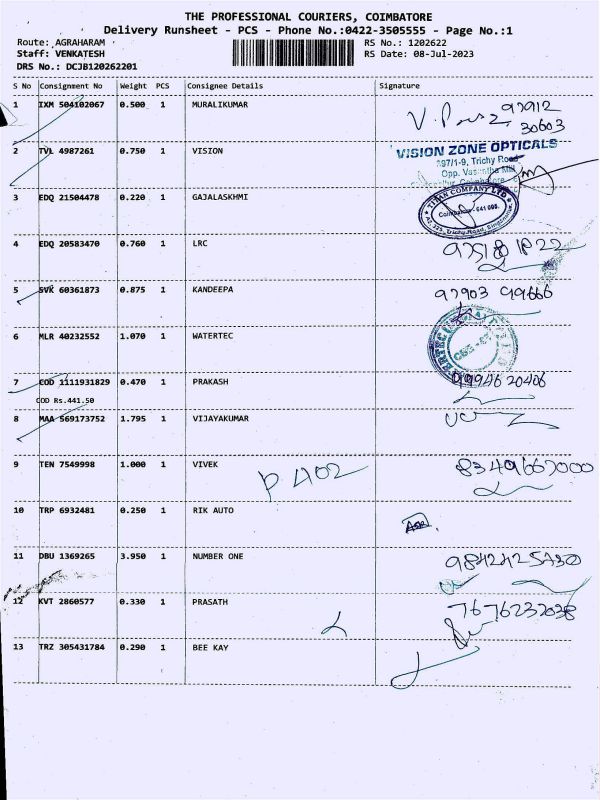 THE PROFESSIONAL COURIERS, COIMBATORE
Delivery Runsheet - PCS - Phone No.:0422-3505555 - Page No.:1
Route: AGRAHARAM RS No.: 1202622
Staff: VENKATESH RS Date: 08-Jul-2023
DRS No.: DCJB120262201
S No Consignment No Weight PCS Consignee Details Signature
1 IXM 504102067 0.500 1 MURALIKUMAR 97912
30603
2 TVL 4987261 0.750 1 VISION VISION ZONE OPTICALS
597/1-9, Trichy Road
Opp. Vasantha Mill
3 EDQ 21504478 0.220 1 GAJALASKHMI TITAN COMPANY LTD
Coimbatore - 641 005.
4 EDQ 20583470 0.760 1 LRC
5 SVK 60361873 0.875 1 KANDEEPA 97903 99666
6 MLR 40232552 1.070 1 WATERTEC
7 COD 1111931829 0.470 1 PRAKASH 99946 20406
COD Rs.441.50
8 MAA 569173752 1.795 1 VIJAYAKUMAR
9 TEN 7549998 1.000 1 VIVEK P 402
10 TRP 6932481 0.250 1 RIK AUTO
11 DBU 1369265 3.950 1 NUMBER ONE
12 KVT 2860577 0.330 1 PRASATH 7676232038
13 TRZ 305431784 0.290 1 BEE KAY